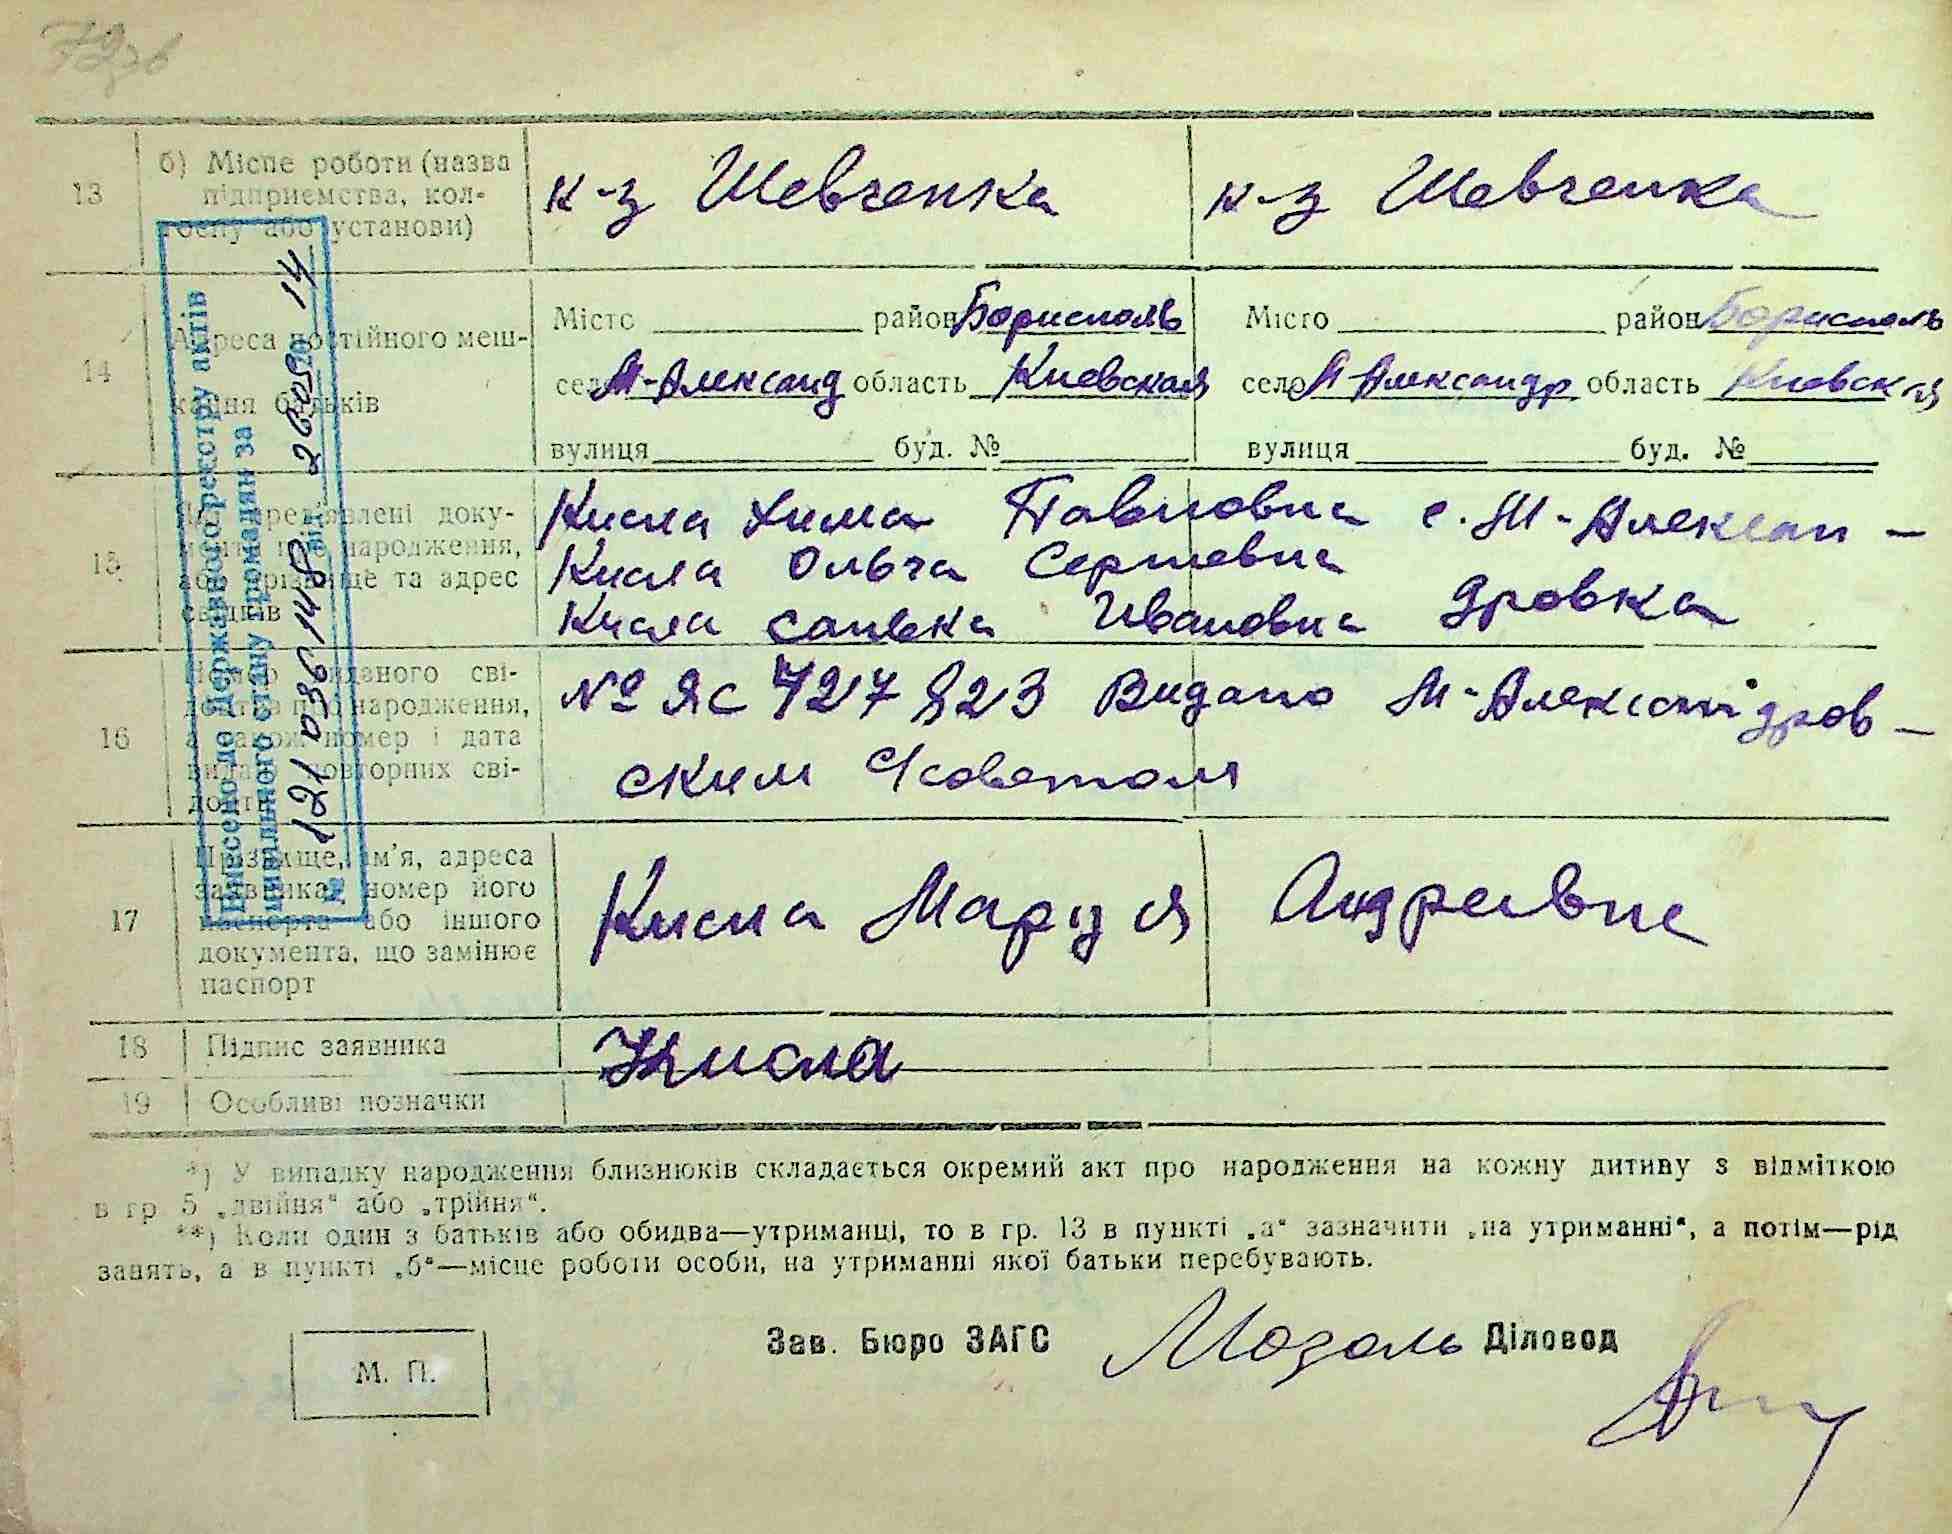 13
б) Місце роботи (назва
підприємства, кол-
госпу або установи)
к-з Шевченка
к-з Шевченка
14
Адреса постійного меш-
кання батьків
Місто район Борисполь
село М-Александ область Киевская
вулиця буд. №
Місто район Борисполь
село М Александр область Киевская
вулиця буд. №
15
пред'явлені доку-
менти про народження,
або прізвище та адрес
свідків
Кисла Хима Павловна с. М-Алексан-
Кисла Ольга Сергіевна
дровка
Кисла Санька Ивановна
16
Номер виданого сві-
доцтва про народження,
а також номер і дата
видачі повторних сві-
доцтв
№ ЯС 727823 Видано М-Александров-
ским С/советом
17
Прізвище, ім'я, адреса
заявника, номер його
паспорта або іншого
документа, що замінює
паспорт
Кисла Маруся Андреевна
18
Підпис заявника
Кисла
19
Особливі позначки
Внесено до Державного реєстру актів
цивільного стану громадян за
№ 121 036 148 від 260520 14
*) У випадку народження близнюків складається окремий акт про народження на кожну дитину з відміткою
в гр 5 „двійня“ або „трійня“.
**) Коли один з батьків або обидва—утриманці, то в гр. 13 в пункті „а“ зазначити „на утриманні“, а потім—рід
занять, а в пункті „б“—місце роботи особи, на утриманні якої батьки перебувають.
М. П.
Зав. Бюро ЗАГС Мозоль Діловод